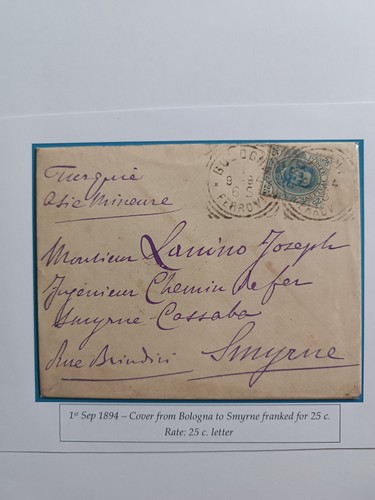 Turquie
Asie Mineure
BOLOGN
FERROV
Monsieur Lanino Joseph
Ingénieur Chemin de fer
Smyrne-Cassaba
Rue Brindici
Smyrne
1st Sep 1894 – Cover from Bologna to Smyrne franked for 25 c.
Rate: 25 c. letter